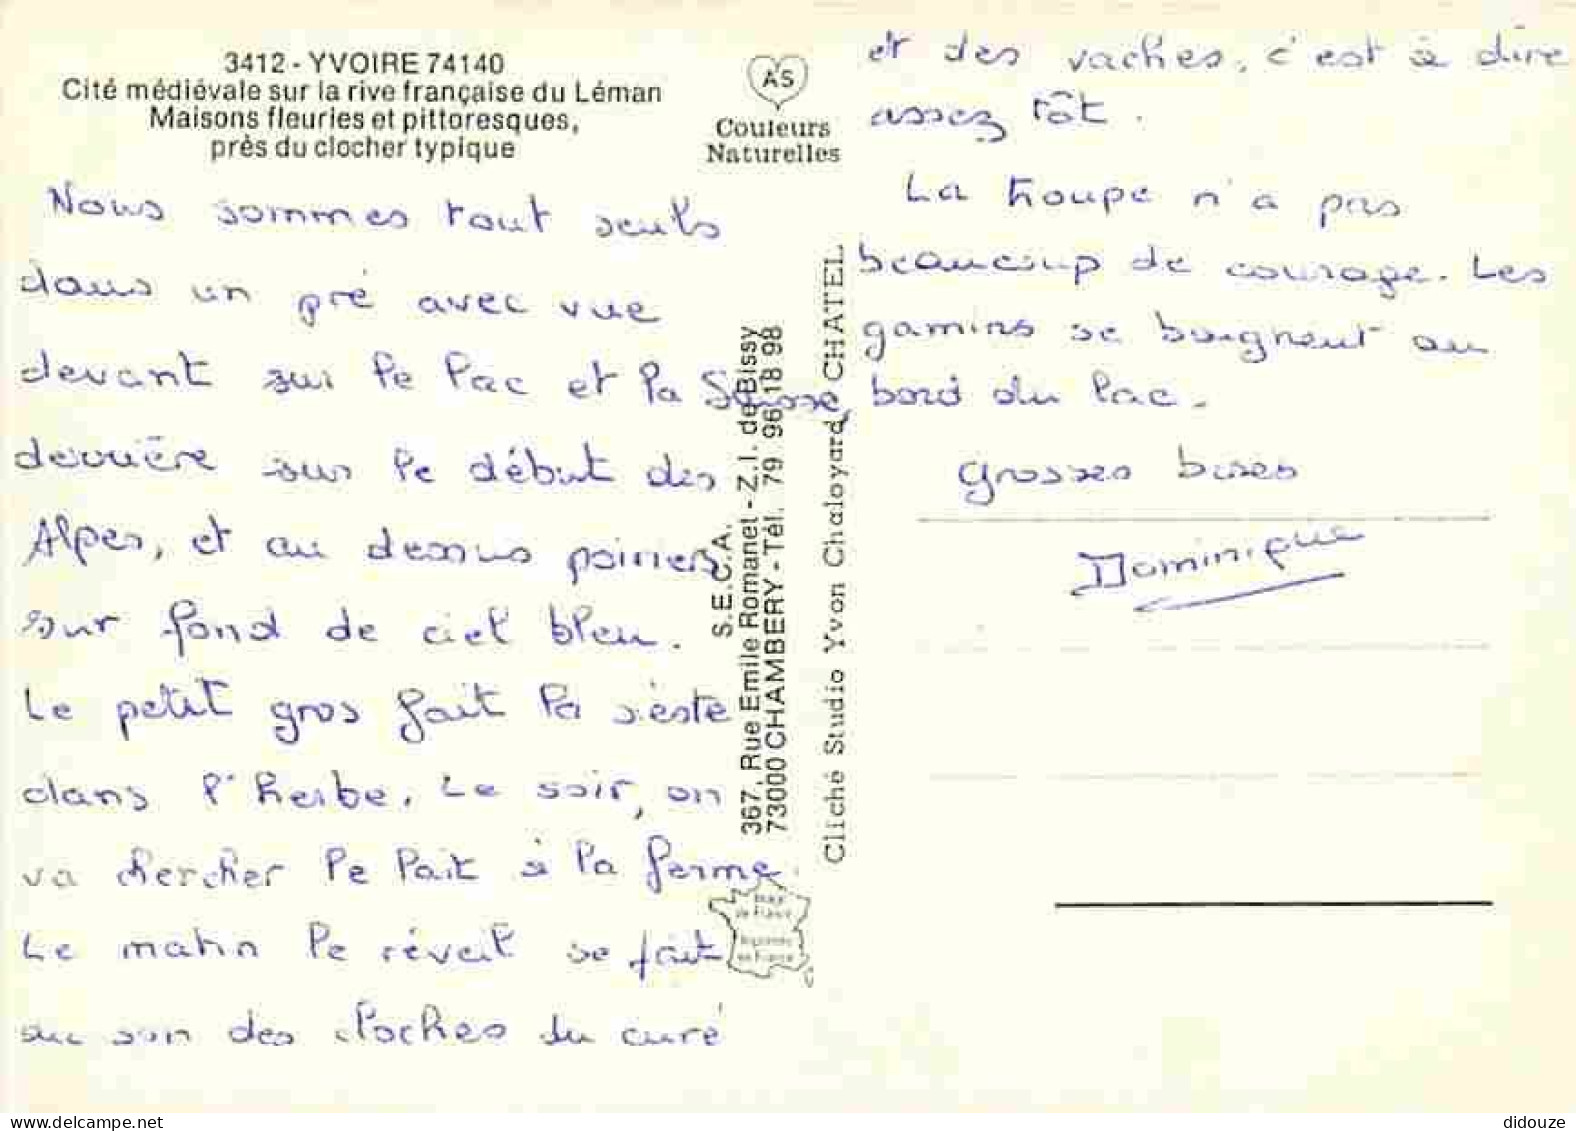 3412 - YVOIRE 74140
Cité médiévale sur la rive française du Léman
Maisons fleuries et pittoresques,
près du clocher typique
AS
Couleurs
Naturelles
Nous sommes tout seuls
dans un pré avec vue
devant sur le lac et la Suisse,
derrière sur le début des
Alpes, et au dessus poiriers
sur fond de ciel bleu.
Le petit gros fait la sieste
dans l'herbe. Le soir, on
va chercher le lait à la ferme.
Le matin le réveil se fait
au son des cloches du curé
S.E.C.A.
367, Rue Emile Romanet - Z.I. de Bissy
73000 CHAMBERY - Tél. 79 96 18 98
Cliché Studio Yvon Chaloyard, CHATEL
et des vaches, c'est à dire
assez tôt.
La troupe n'a pas
beaucoup de courage. Les
gamins se baignent au
bord du lac.
Grosses bises
Dominique
didouze